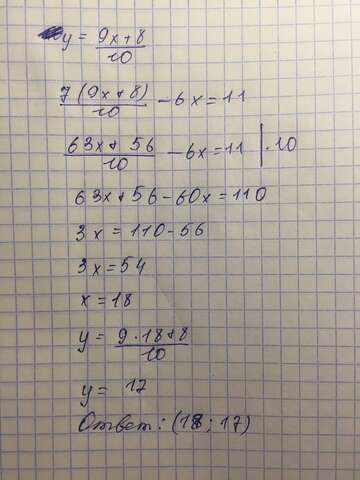 y = 9x+8/10
7(9x+8)/10 - 6x = 11
63x+56/10 - 6x = 11 | ·10
63x+56-60x=110
3x = 110-56
3x=54
x=18
y = 9·18+8/10
y = 17
Ответ: (18; 17)